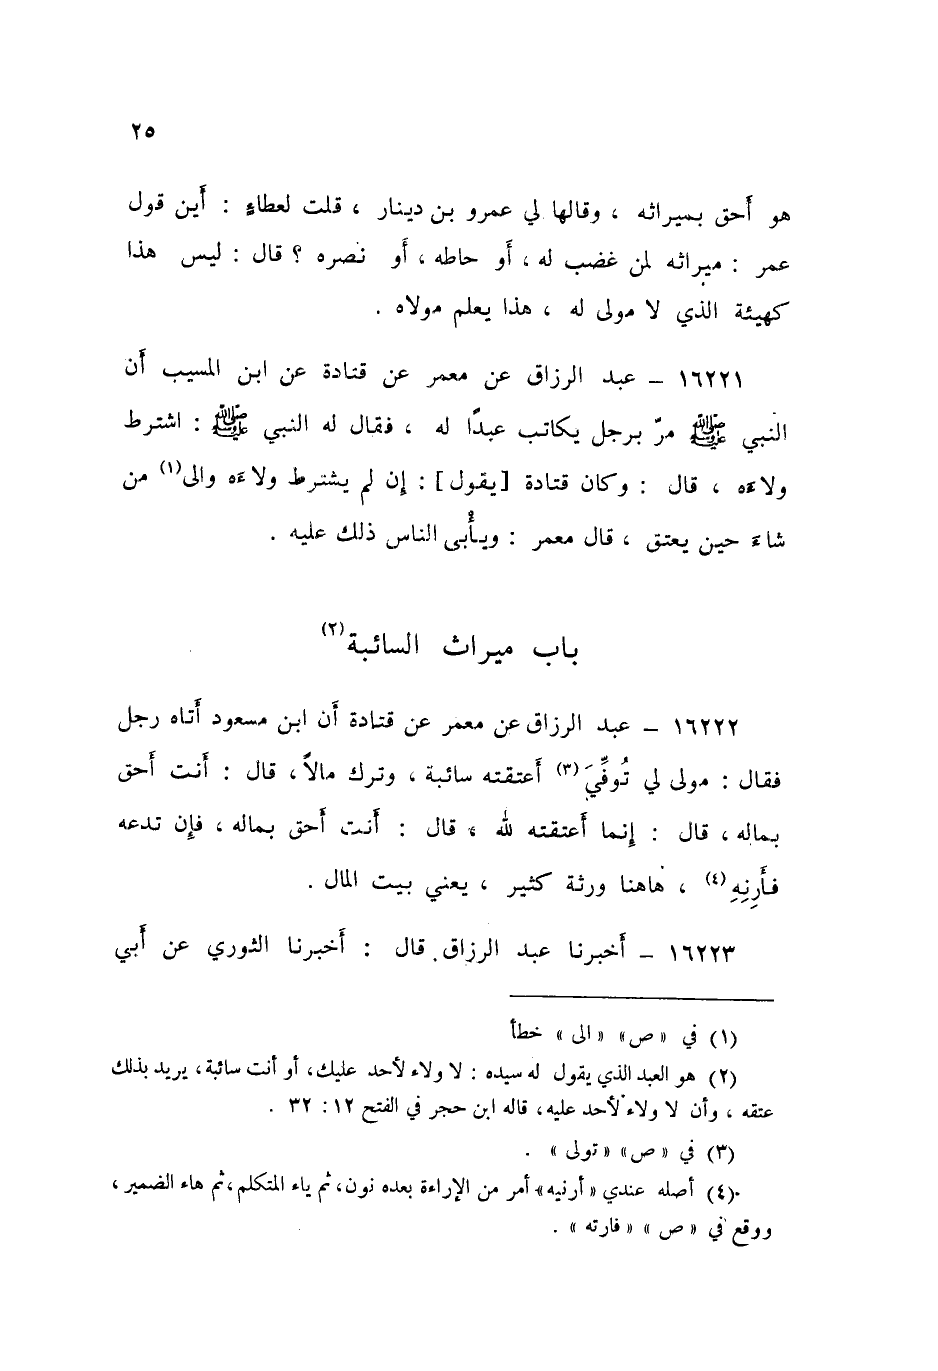 ٢٥
هو أحق بميراثه ، وقالها لي عمرو بن دينار ، قلت لعطاءٍ : أين قول
عمر : ميراثه لمن غضب له ، أو حاطه ، أو نصره ؟ قال : ليس هذا
كهيئة الذي لا مولى له ، هذا يعلم مولاه .
١٦٢٢١ – عبد الرزاق عن معمر عن قتادة عن ابن المسيب أن
النبي ﷺ مرّ برجل يكاتب عبدًا له ، فقال له النبي ﷺ : اشترط
ولاءه ، قال : وكان قتادة [يقول] : إن لم يشترط ولاءه والى(١) من
شاءَ حين يعتق ، قال معمر : ويأْبى الناس ذلك عليه .
باب ميراث السائبة(٢)
١٦٢٢٢ – عبد الرزاق عن معمر عن قتادة أن ابن مسعود أتاه رجل
فقال : مولى لي تُوفِّيَ(٣) أعتقته سائبة ، وترك مالاً ، قال : أنت أحق
بماله ، قال : إنما أعتقته لله ، قال : أنت أحق بماله ، فإن تدعه
فأَرِنِهِ(٤) ، هاهنا ورثة كثير ، يعني بيت المال .
١٦٢٢٣ – أخبرنا عبد الرزاق قال : أخبرنا الثوري عن أبي
(١) في « ص» « الى » خطأ
(٢) هو العبد الذي يقول له سيده : لا ولاء لأحد عليك، أو أنت سائبة ، يريد بذلك
عتقه ، وأن لا ولاء لأحد عليه، قاله ابن حجر في الفتح ١٢ : ٣٢ .
(٣) في « ص» « تولى » .
(٤) أصله عندي « أرنيه » أمر من الإراءة بعده نون، ثم ياء المتكلم ، ثم هاء الضمير ،
ووقع في « ص » « فارته » .